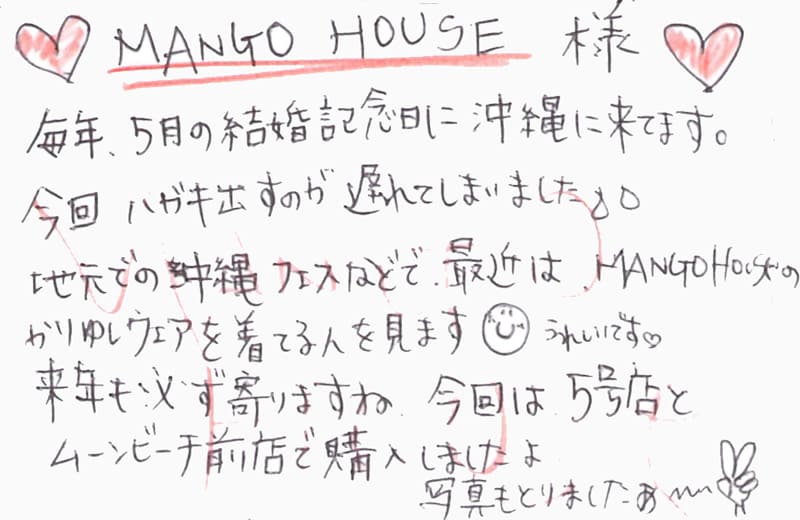 MANGO HOUSE 様
毎年、5月の結婚記念日に沖縄に来てます。
今回 ハガキ出すのが遅れてしまいました
地元での沖縄フェスなどで、最近は、MANGO HOUSEの
かりゆしウェアを着てる人を見ます うれしいです♡
来年も必ず寄りますね 今回は 5号店と
ムーンビーチ前店で購入しましたよ
写真もとりましたぁ